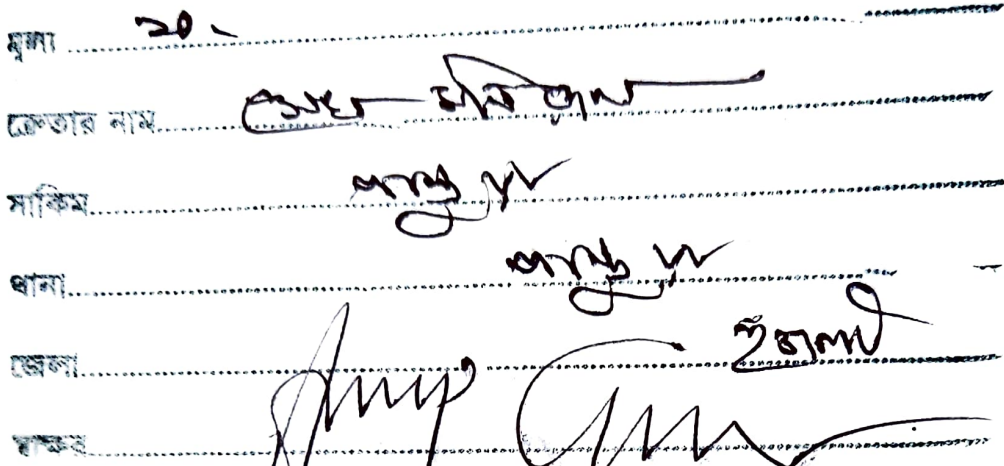 মূল্য 20
ক্রেতার নাম সেখ মনিরুল
সাকিম পান্ডুয়া
থানা পান্ডুয়া
জেলা হুগলী
স্বাক্ষর